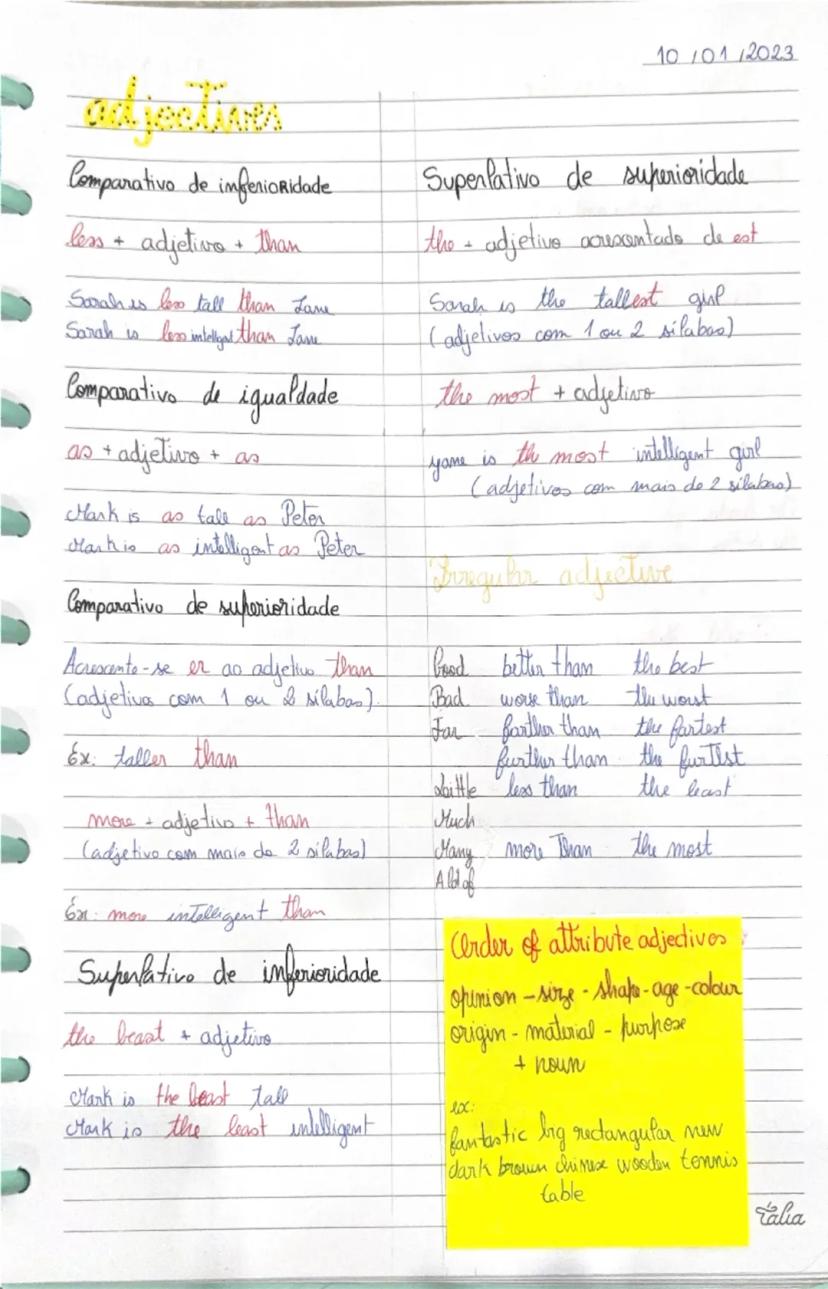 10/01/2023
adjectives
Comparativo de inferioridade
less + adjetivo + than
Sarah is less tall than Jane
Sarah is less intelligent than Jane
Comparativo de igualdade
as + adjetivo + as
Mark is as tall as Peter
Mark is as intelligent as Peter
Comparativo de superioridade
Acrescenta-se er ao adjetivo than
(adjetivos com 1 ou 2 sílabas)
Ex: taller than
more + adjetivo + than
(adjetivo com mais de 2 sílabas)
Ex: more intelligent than
Superlativo de inferioridade
the least + adjetivo
Mark is the least tall
Mark is the least intelligent
Superlativo de superioridade
the + adjetivo acrescentado de est
Sarah is the tallest girl
(adjetivos com 1 ou 2 sílabas)
the most + adjetivo
yane is th most intelligent girl
(adjetivos com mais de 2 sílabas)
Irregular adjective
Good better than the best
Bad worse than the worst
Far farther than the fartest
further than the furtest
Little less than the least
Much
Many more than the most
A lot of
Order of attribute adjectives:
opinion - size - shape - age - colour
origin - material - purpose
+ noun
ex:
fantastic big rectangular new
dark brown chinese wooden tennis
table
Talia